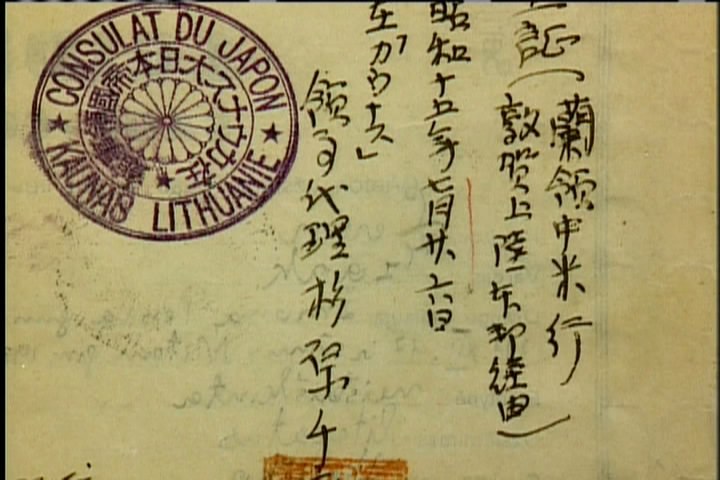 証（蘭領中米行
敦賀上陸、本邦経由）
昭和十五年七月廿六日
在カウナス」
領事代理杉原千
CONSULAT DU JAPON
KAUNAS LITHUANIE
在カウナス大日本帝國領事館